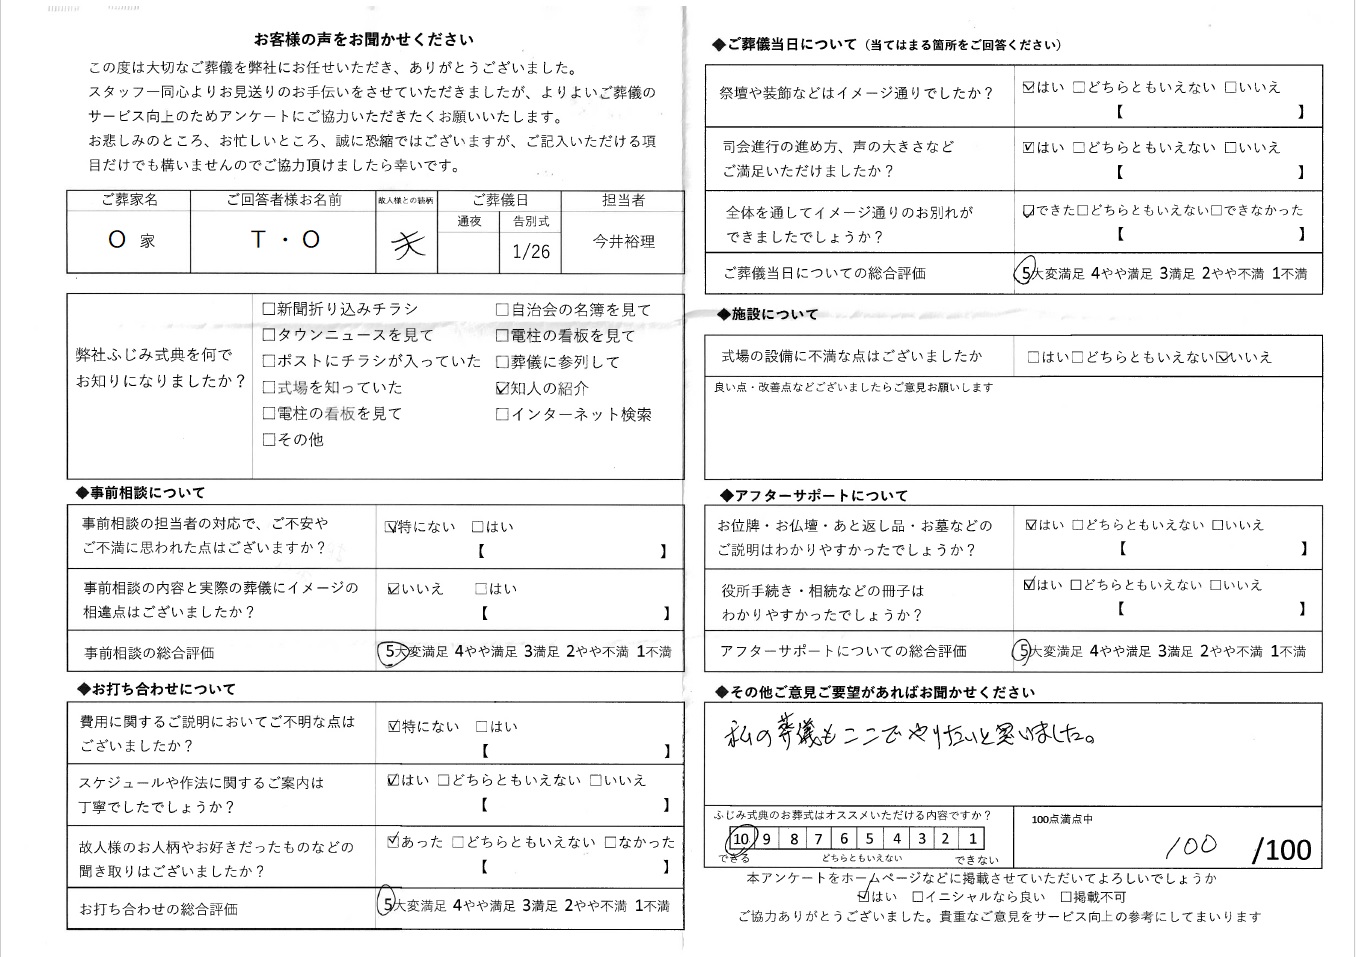 お客様の声をお聞かせください
この度は大切なご葬儀を弊社にお任せいただき、ありがとうございました。
スタッフ一同心よりお見送りのお手伝いをさせていただきましたが、よりよいご葬儀の
サービス向上のためアンケートにご協力いただきたくお願いいたします。
お悲しみのところ、お忙しいところ、誠に恐縮ではございますが、ご記入いただける項
目だけでも構いませんのでご協力頂けましたら幸いです。
ご葬家名 ご回答者様お名前 故人様との続柄 ご葬儀日 担当者
通夜 告別式
O 家 T・O 夫 1/26 今井裕理
弊社ふじみ式典を何で
お知りになりましたか？
☐新聞折り込みチラシ ☐自治会の名簿を見て
☐タウンニュースを見て ☐電柱の看板を見て
☐ポストにチラシが入っていた ☐葬儀に参列して
☐式場を知っていた ☑知人の紹介
☐電柱の看板を見て ☐インターネット検索
☐その他
◆事前相談について
事前相談の担当者の対応で、ご不安や
ご不満に思われた点はございますか？
☑特にない ☐はい
【 】
事前相談の内容と実際の葬儀にイメージの
相違点はございましたか？
☑いいえ ☐はい
【 】
事前相談の総合評価
5大変満足 4やや満足 3満足 2やや不満 1不満
◆お打ち合わせについて
費用に関するご説明においてご不明な点は
ございましたか？
☑特にない ☐はい
【 】
スケジュールや作法に関するご案内は
丁寧でしたでしょうか？
☑はい ☐どちらともいえない ☐いいえ
【 】
故人様のお人柄やお好きだったものなどの
聞き取りはございましたか？
☑あった ☐どちらともいえない ☐なかった
【 】
お打ち合わせの総合評価
5大変満足 4やや満足 3満足 2やや不満 1不満
◆ご葬儀当日について（当てはまる箇所をご回答ください）
祭壇や装飾などはイメージ通りでしたか？
☑はい ☐どちらともいえない ☐いいえ
【 】
司会進行の進め方、声の大きさなど
ご満足いただけましたか？
☑はい ☐どちらともいえない ☐いいえ
【 】
全体を通してイメージ通りのお別れが
できましたでしょうか？
☑できた☐どちらともいえない☐できなかった
【 】
ご葬儀当日についての総合評価
5大変満足 4やや満足 3満足 2やや不満 1不満
◆施設について
式場の設備に不満な点はございましたか
☐はい☐どちらともいえない☑いいえ
良い点・改善点などございましたらご意見お願いします
◆アフターサポートについて
お位牌・お仏壇・あと返し品・お墓などの
ご説明はわかりやすかったでしょうか？
☑はい ☐どちらともいえない ☐いいえ
【 】
役所手続き・相続などの冊子は
わかりやすかったでしょうか？
☑はい ☐どちらともいえない ☐いいえ
【 】
アフターサポートについての総合評価
5大変満足 4やや満足 3満足 2やや不満 1不満
◆その他ご意見ご要望があればお聞かせください
私の葬儀もここでやりたいと思いました。
ふじみ式典のお葬式はオススメいただける内容ですか？
10 9 8 7 6 5 4 3 2 1
できる どちらともいえない できない
100点満点中
100 /100
本アンケートをホームページなどに掲載させていただいてよろしいでしょうか
☑はい ☐イニシャルなら良い ☐掲載不可
ご協力ありがとうございました。貴重なご意見をサービス向上の参考にしてまいります